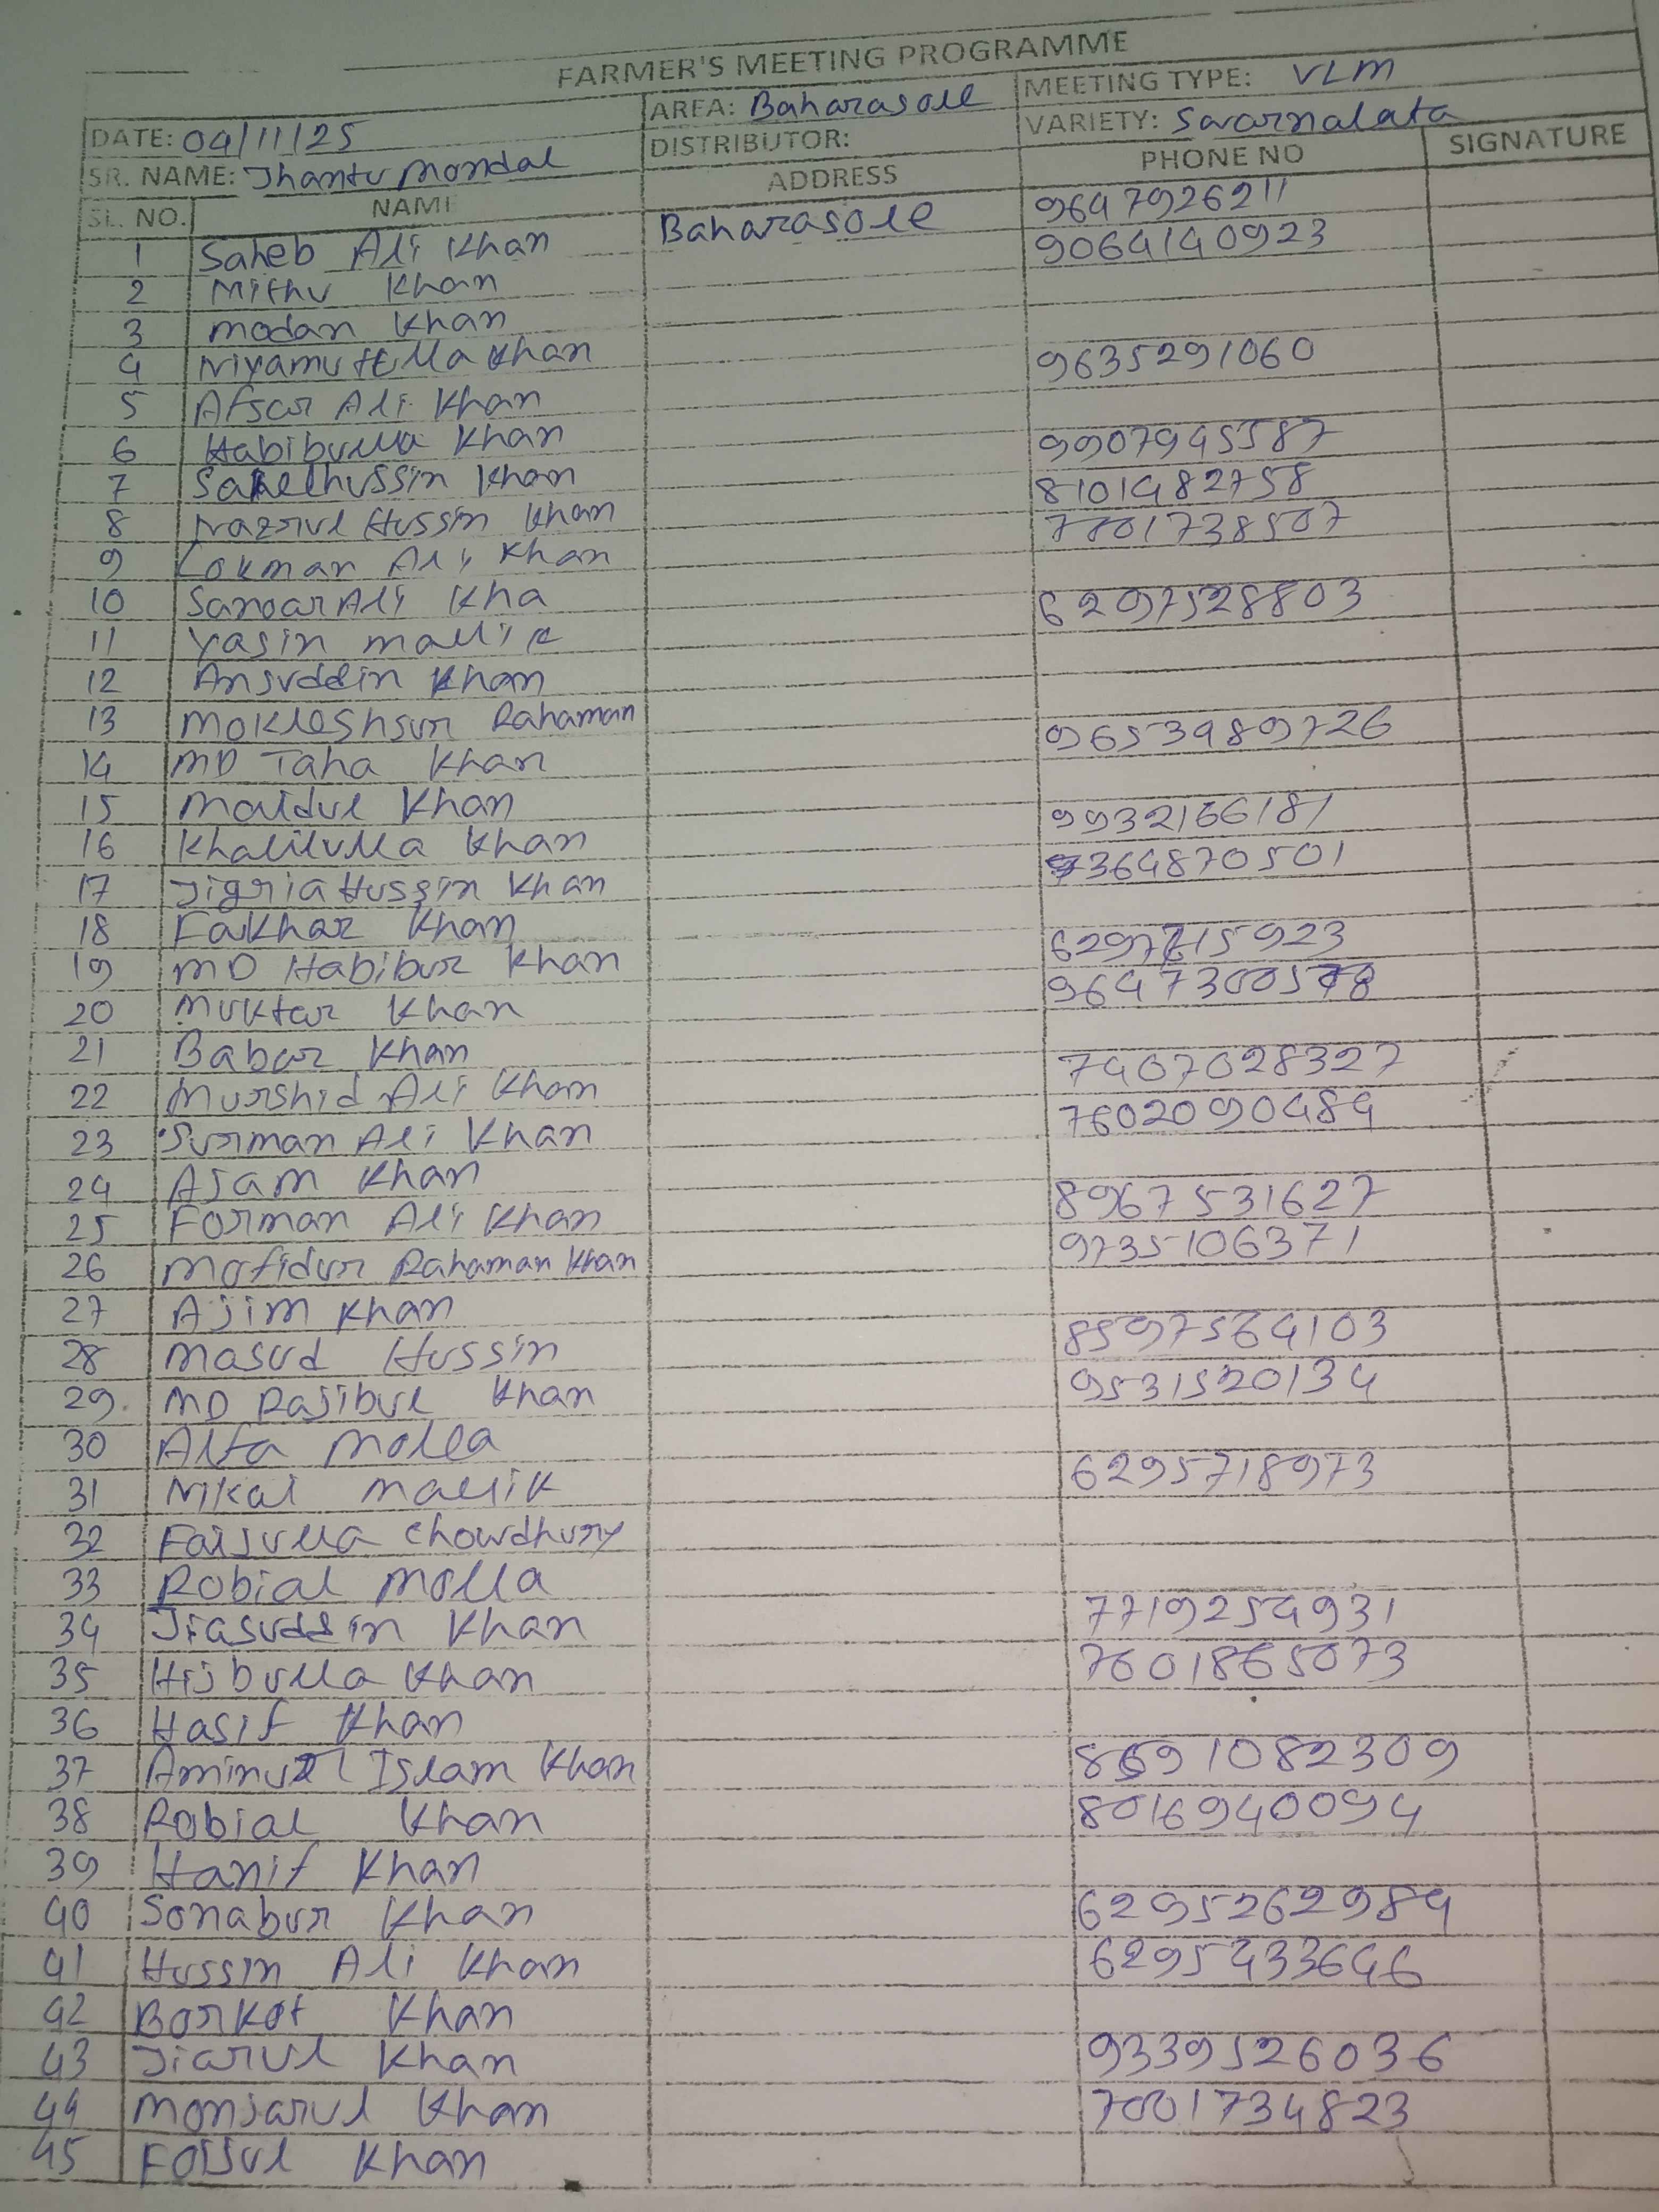 FARMER'S MEETING PROGRAMME
DATE: 04/11/25 AREA: Baharasole MEETING TYPE: VLM
SR. NAME: Jhantu Mondal DISTRIBUTOR: VARIETY: Swarnalata
SL. NO. NAME ADDRESS PHONE NO SIGNATURE
1 Saheb Ali Khan Baharasole 9647926211
2 Mithu Khan 9064140923
3 Modan Khan
4 Niyamutulla Khan
5 Afsar Ali Khan 9635291060
6 Habibulla Khan
7 Sahelhussin Khan 9907945587
8 Nazrul Hussin Khan 8101482758
9 Lokman Ali Khan 7801738507
10 Sanoar Ali Kha
11 Yasin Mallik 6297528803
12 Ansuddin Khan
13 Mokleshsur Rahaman
14 MD Taha Khan 9653989726
15 Maidul Khan
16 Khalilulla Khan 9932166181
17 Jigria Hussin Khan 9364870501
18 Fakhar Khan
19 MD Habibur Khan
20 Muktar Khan
21 Babar Khan
22 Murshid Ali Khan 7407028327
23 Surman Ali Khan 7602090484
24 Ajam Khan
25 Forman Ali Khan 8967531627
26 Mofidur Rahaman Khan 9735106371
27 Ajim Khan
28 Masud Hussin 8597564103
29. MD Rajibul Khan 9531520134
30 Alfa Molla
31 Nikal Mallik 6295718973
32 Faijulla Chowdhury
33 Robial Molla
34 Jiasuddin Khan 7719254931
35 Hijbulla Khan 7601865073
36 Hasif Khan
37 Aminul Islam Khan
38 Robial Khan 8016940094
39 Hanif Khan
40 Sonabur Khan 6295262984
41 Hussin Ali Khan 6295433646
42 Borkot Khan
43 Jiarul Khan 9339526036
44 Monjarul Khan 7001734823
45 Foijul Khan